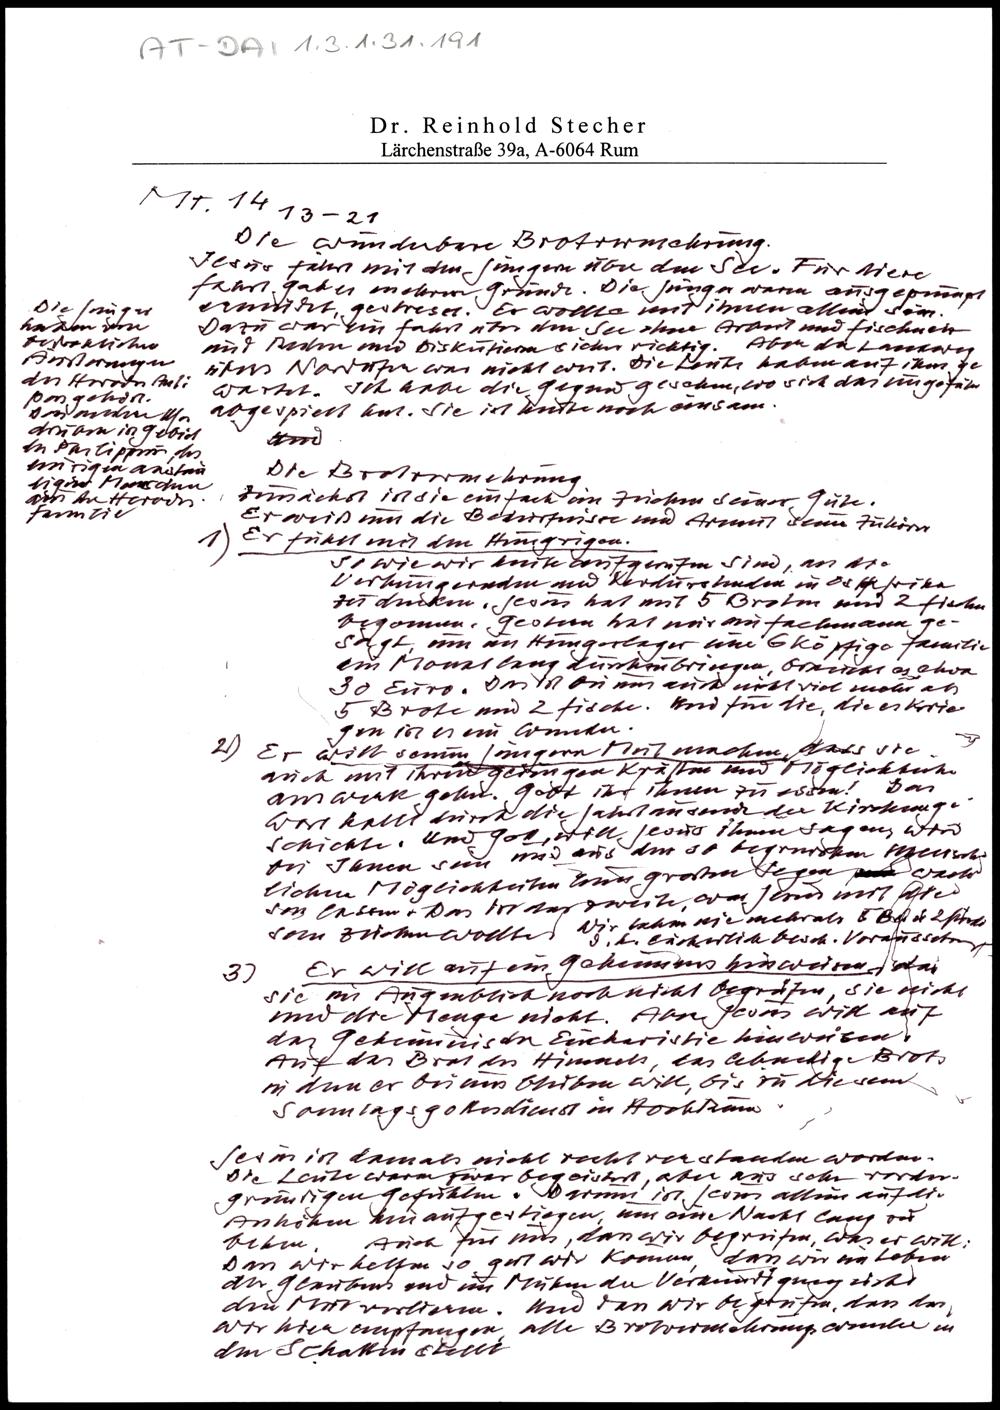 AT-DAI 1.3.1.31.191
Dr. Reinhold Stecher
Lärchenstraße 39a, A-6064 Rum
Mt. 14 13-21
Die wunderbare Brotvermehrung.
Jesus fährt mit den Jüngern über den See. Für diese
Fahrt gab es mehrere Gründe. Die Jünger waren ausgepumpt
ermüdet, gestresst. Er wollte mit ihnen allein sein.
Dazu war ein Fahrt über den See ohne Arbeit und fischen
und Reden und Diskutieren sicher richtig. Aber der Landweg
übers Nordufer war nicht weit. Die Leute haben auf ihn ge
wartet. Ich habe die Gegend gesehen, wo sich das ungefähr
abgespielt hat. Sie ist heute noch einsam.
Die Jünger
haben von
bedrohlichen
Äusserungen
des Herodes Anti
pas gehört.
Das andere
drüben ist Gebiet
des Philippus, des
einzigen anstän
digen Menschen
aus der Herodes
familie
und
Die Brotvermehrung
Zunächst ist sie einfach ein Zeichen seiner Güte.
Er weiß um die Bedürfnisse und Armut seiner Zuhörer
1) Er fühlt mit den Hungrigen.
So wie wir heute aufgerufen sind, an die
Verhungernden und Verdurstenden in Ostafrika
zu denken. Jesus hat mit 5 Broten und 2 Fischen
begonnen. Gestern hat mir ein Fachmann ge-
sagt, um im Hungerlager eine 6köpfige Familie
ein Monat lang durchzubringen, braucht es etwa
30 Euro. Das ist bei uns auch nicht viel mehr als
5 Brote und 2 Fische. Und für die, die es krie-
gen ist es ein Wunder.
2) Er will seinen Jüngern Mut machen, dass sie
auch mit ihren geringen Kräften und Möglichkeiten
ans Werk gehen. Gebt ihr ihnen zu essen! Das
Wort hallt durch die Jahrtausende der Kirchenge-
schichte. Und Gott, will Jesus ihnen sagen, wird
bei Ihnen sein und aus den so begrenzten menschl
lichen Möglichkeiten einen grossen Segen wach
sen lassen. Das ist das zweite, was Jesus mit die
sem Zeichen wollte. Wir haben nie mehr als 5 Brote 2 Fische
d. h. lächerlich besch. Voraussetz
3) Er will auf ein Geheimnis hinweisen, das
sie im Augenblick noch nicht begreifen, sie nicht
und die Menge nicht. Aber Jesus will auf
das Geheimnis der Eucharistie hinweisen.
Auf das Brot des Himmels, das lebendige Brot,
in dem er bei uns bleiben will, bis zu diesem
Sonntagsgottesdienst in Hochrum.
Jesus ist damals nicht recht verstanden worden.
Die Leute waren zwar begeistert, aber aus sehr vorder-
gründigen Gefühlen. Darum ist Jesus allein auf die
Anhöhen hinaufgestiegen, um eine Nacht lang zu
beten. Auch für uns, dass wir begreifen, was er will:
Dass wir helfen so gut wir können, dass wir im Leben
des Glaubens und im Mühen der Verkündigung nicht
den Mut verlieren. Und dass wir begreifen, dass das,
wir hier empfangen, alle Brotvermehrungswunder in
den Schatten stellt